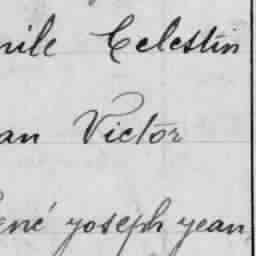 nile Celestin
an Victor
ené yoseph yean